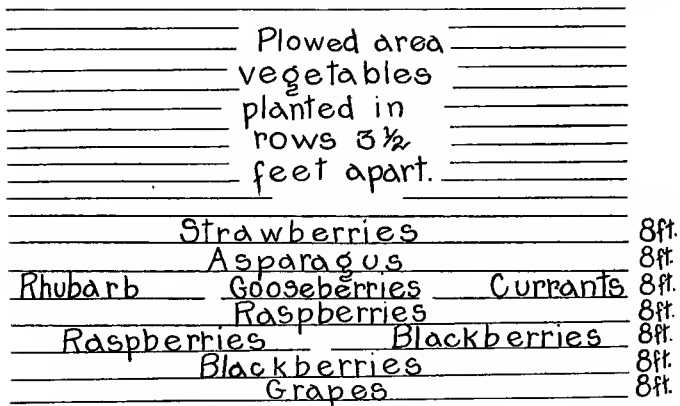 Plowed area
vegetables
planted in
rows 3½
feet apart.
Strawberries 8ft.
Asparagus 8ft.
Rhubarb Gooseberries Currants 8ft.
Raspberries 8ft.
Raspberries Blackberries 8ft.
Blackberries 8ft.
Grapes 8ft.